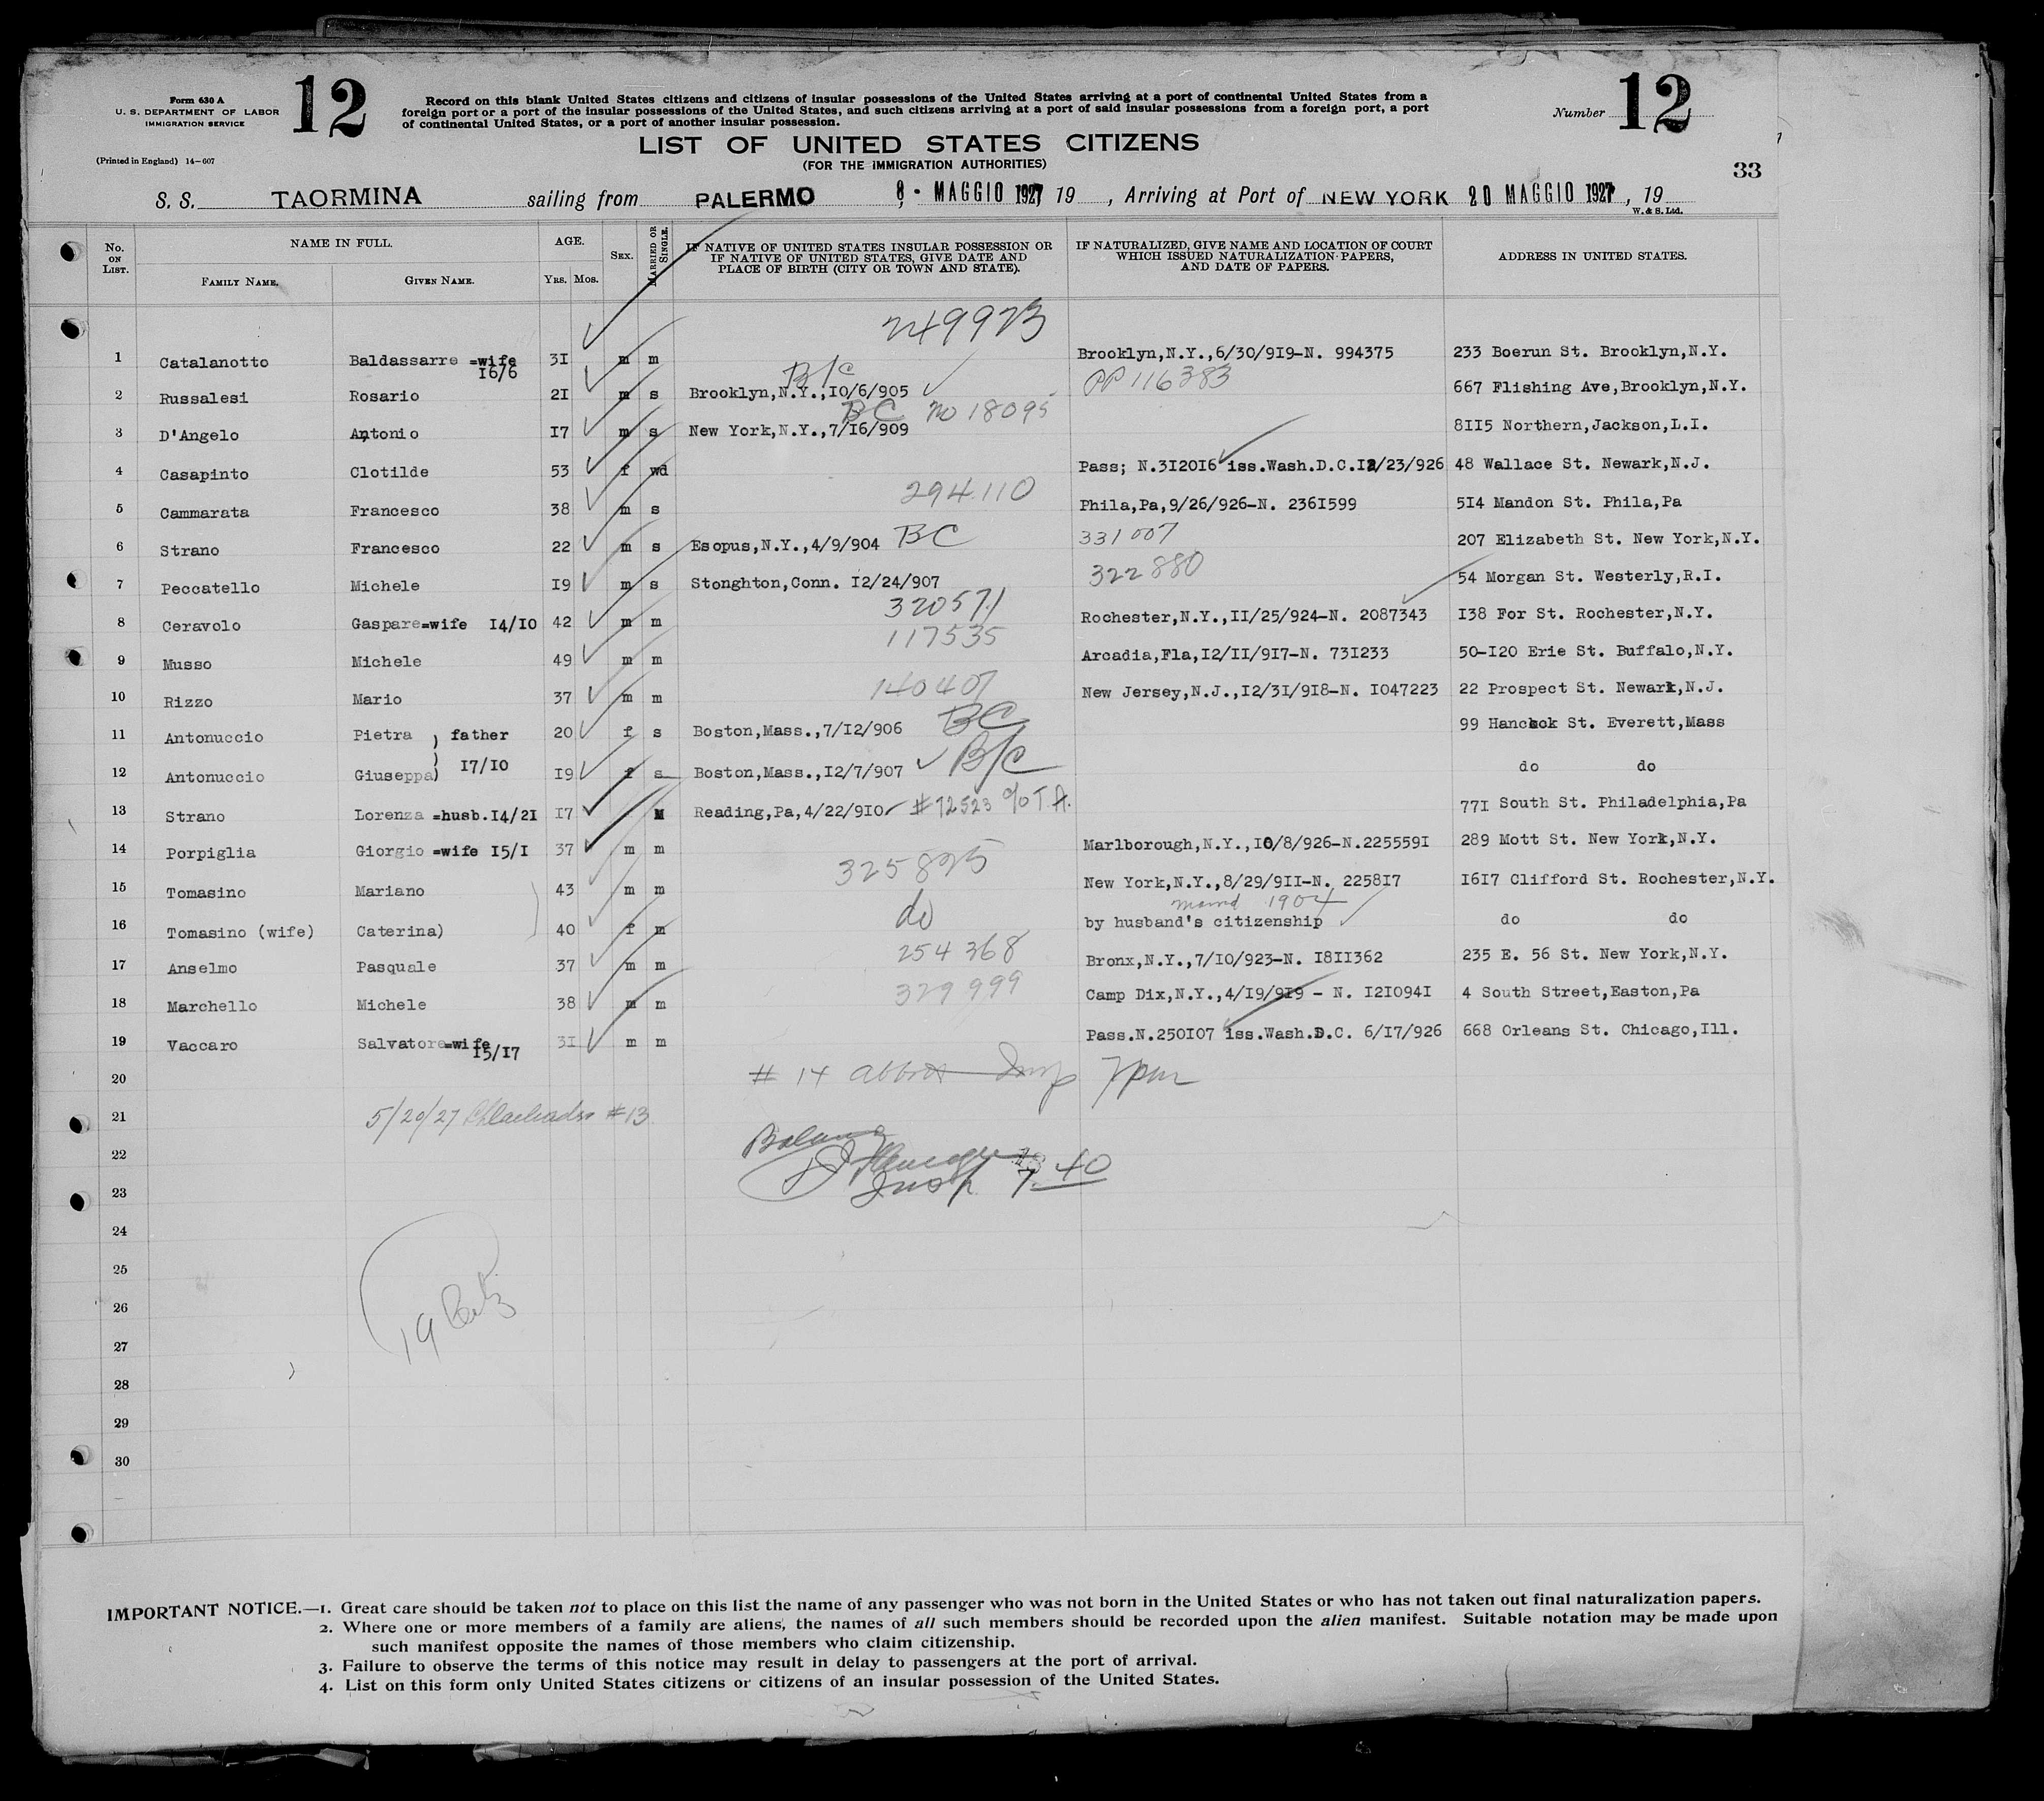 Form 630 A
U. S. DEPARTMENT OF LABOR
IMMIGRATION SERVICE
(Printed in England) 14-607
12
Record on this blank United States citizens and citizens of insular possessions of the United States arriving at a port of continental United States from a
foreign port or a port of the insular possessions of the United States, and such citizens arriving at a port of said insular possessions from a foreign port, a port
of continental United States, or a port of another insular possession.
LIST OF UNITED STATES CITIZENS
(FOR THE IMMIGRATION AUTHORITIES)
Number 12
33
S. S. TAORMINA sailing from PALERMO 8 - MAGGIO 1927 19 , Arriving at Port of NEW YORK 20 MAGGIO 1927, 19
W. & S. Ltd.
No. ON LIST. NAME IN FULL. AGE. SEX. MARRIED OR SINGLE. IF NATIVE OF UNITED STATES INSULAR POSSESSION OR IF NATIVE OF UNITED STATES, GIVE DATE AND PLACE OF BIRTH (CITY OR TOWN AND STATE). IF NATURALIZED, GIVE NAME AND LOCATION OF COURT WHICH ISSUED NATURALIZATION PAPERS, AND DATE OF PAPERS. ADDRESS IN UNITED STATES.
FAMILY NAME. GIVEN NAME. YRS. MOS.
249923
1 Catalanotto Baldassarre =wife 16/6 31 m m Brooklyn,N.Y.,6/30/919-N. 994375 233 Boerun St. Brooklyn,N.Y.
B/C PP 116383
2 Russalesi Rosario 21 m s Brooklyn,N.Y.,10/6/905 667 Flishing Ave,Brooklyn,N.Y.
BC no 18095
3 D'Angelo Antonio 17 m s New York,N.Y.,7/16/909 8115 Northern,Jackson,L.I.
4 Casapinto Clotilde 53 f wd Pass; N.312016 iss.Wash.D.C.12/23/926 48 Wallace St. Newark,N.J.
294110
5 Cammarata Francesco 38 m s Phila,Pa,9/26/926-N. 2361599 514 Mandon St. Phila,Pa
6 Strano Francesco 22 m s Esopus,N.Y.,4/9/904 BC 331007 207 Elizabeth St. New York,N.Y.
7 Peccatello Michele 19 m s Stonghton,Conn. 12/24/907 322880 54 Morgan St. Westerly,R.I.
320571
8 Ceravolo Gaspare=wife 14/10 42 m m Rochester,N.Y.,11/25/924-N. 2087343 138 For St. Rochester,N.Y.
117535
9 Musso Michele 49 m m Arcadia,Fla,12/11/917-N. 731233 50-120 Erie St. Buffalo,N.Y.
140407
10 Rizzo Mario 37 m m New Jersey,N.J.,12/31/918-N. 1047223 22 Prospect St. Newark,N.J.
11 Antonuccio Pietra ) father 20 f s Boston,Mass.,7/12/906 BC 99 Hancock St. Everett,Mass
12 Antonuccio Giuseppa) 17/10 19 f s Boston,Mass.,12/7/907 B/C do do
13 Strano Lorenza =husb.14/21 17 M Reading,Pa,4/22/910 #72523 c/o T.A. 771 South St. Philadelphia,Pa
14 Porpiglia Giorgio =wife 15/1 37 m m Marlborough,N.Y.,10/8/926-N.2255591 289 Mott St. New York,N.Y.
325895
15 Tomasino Mariano 43 m m New York,N.Y.,8/29/911-N. 225817 1617 Clifford St. Rochester,N.Y.
1904
16 Tomasino (wife) Caterina) 40 f m do by husband's citizenship do do
254368
17 Anselmo Pasquale 37 m m Bronx,N.Y.,7/10/923-N. 1811362 235 E. 56 St. New York,N.Y.
329999
18 Marchello Michele 38 m m Camp Dix,N.Y.,4/19/919 - N. 1210941 4 South Street,Easton,Pa
19 Vaccaro Salvatore=wife 15/17 31 m m Pass.N.250107 iss.Wash.D.C. 6/17/926 668 Orleans St. Chicago,Ill.
20 # 14 Insp 7pm
21 5/20/27 #13
22
23 Insp. 7.40
24
25
26
19
27
28
29
30
IMPORTANT NOTICE.—1. Great care should be taken not to place on this list the name of any passenger who was not born in the United States or who has not taken out final naturalization papers.
2. Where one or more members of a family are aliens, the names of all such members should be recorded upon the alien manifest. Suitable notation may be made upon
such manifest opposite the names of those members who claim citizenship.
3. Failure to observe the terms of this notice may result in delay to passengers at the port of arrival.
4. List on this form only United States citizens or citizens of an insular possession of the United States.